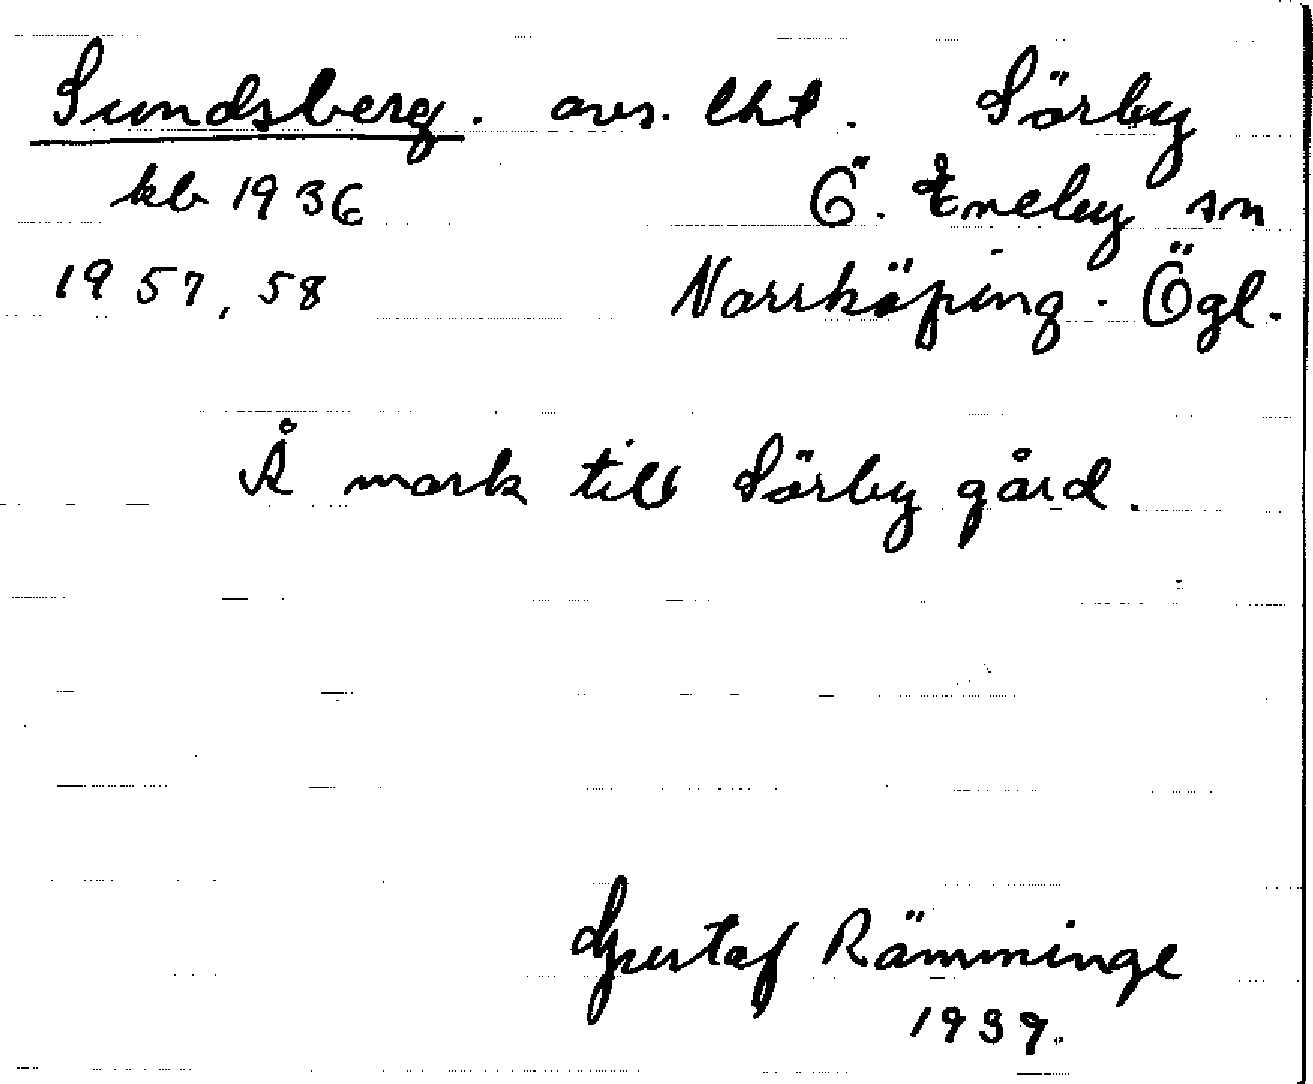 Sundsberg. avs. lht. Sörby
kb 1936 Ö. Eneby sn
1957, 58 Norrköping. Ögl.
Å mark till Sörby gård.
Gustaf Rämminge
1939.